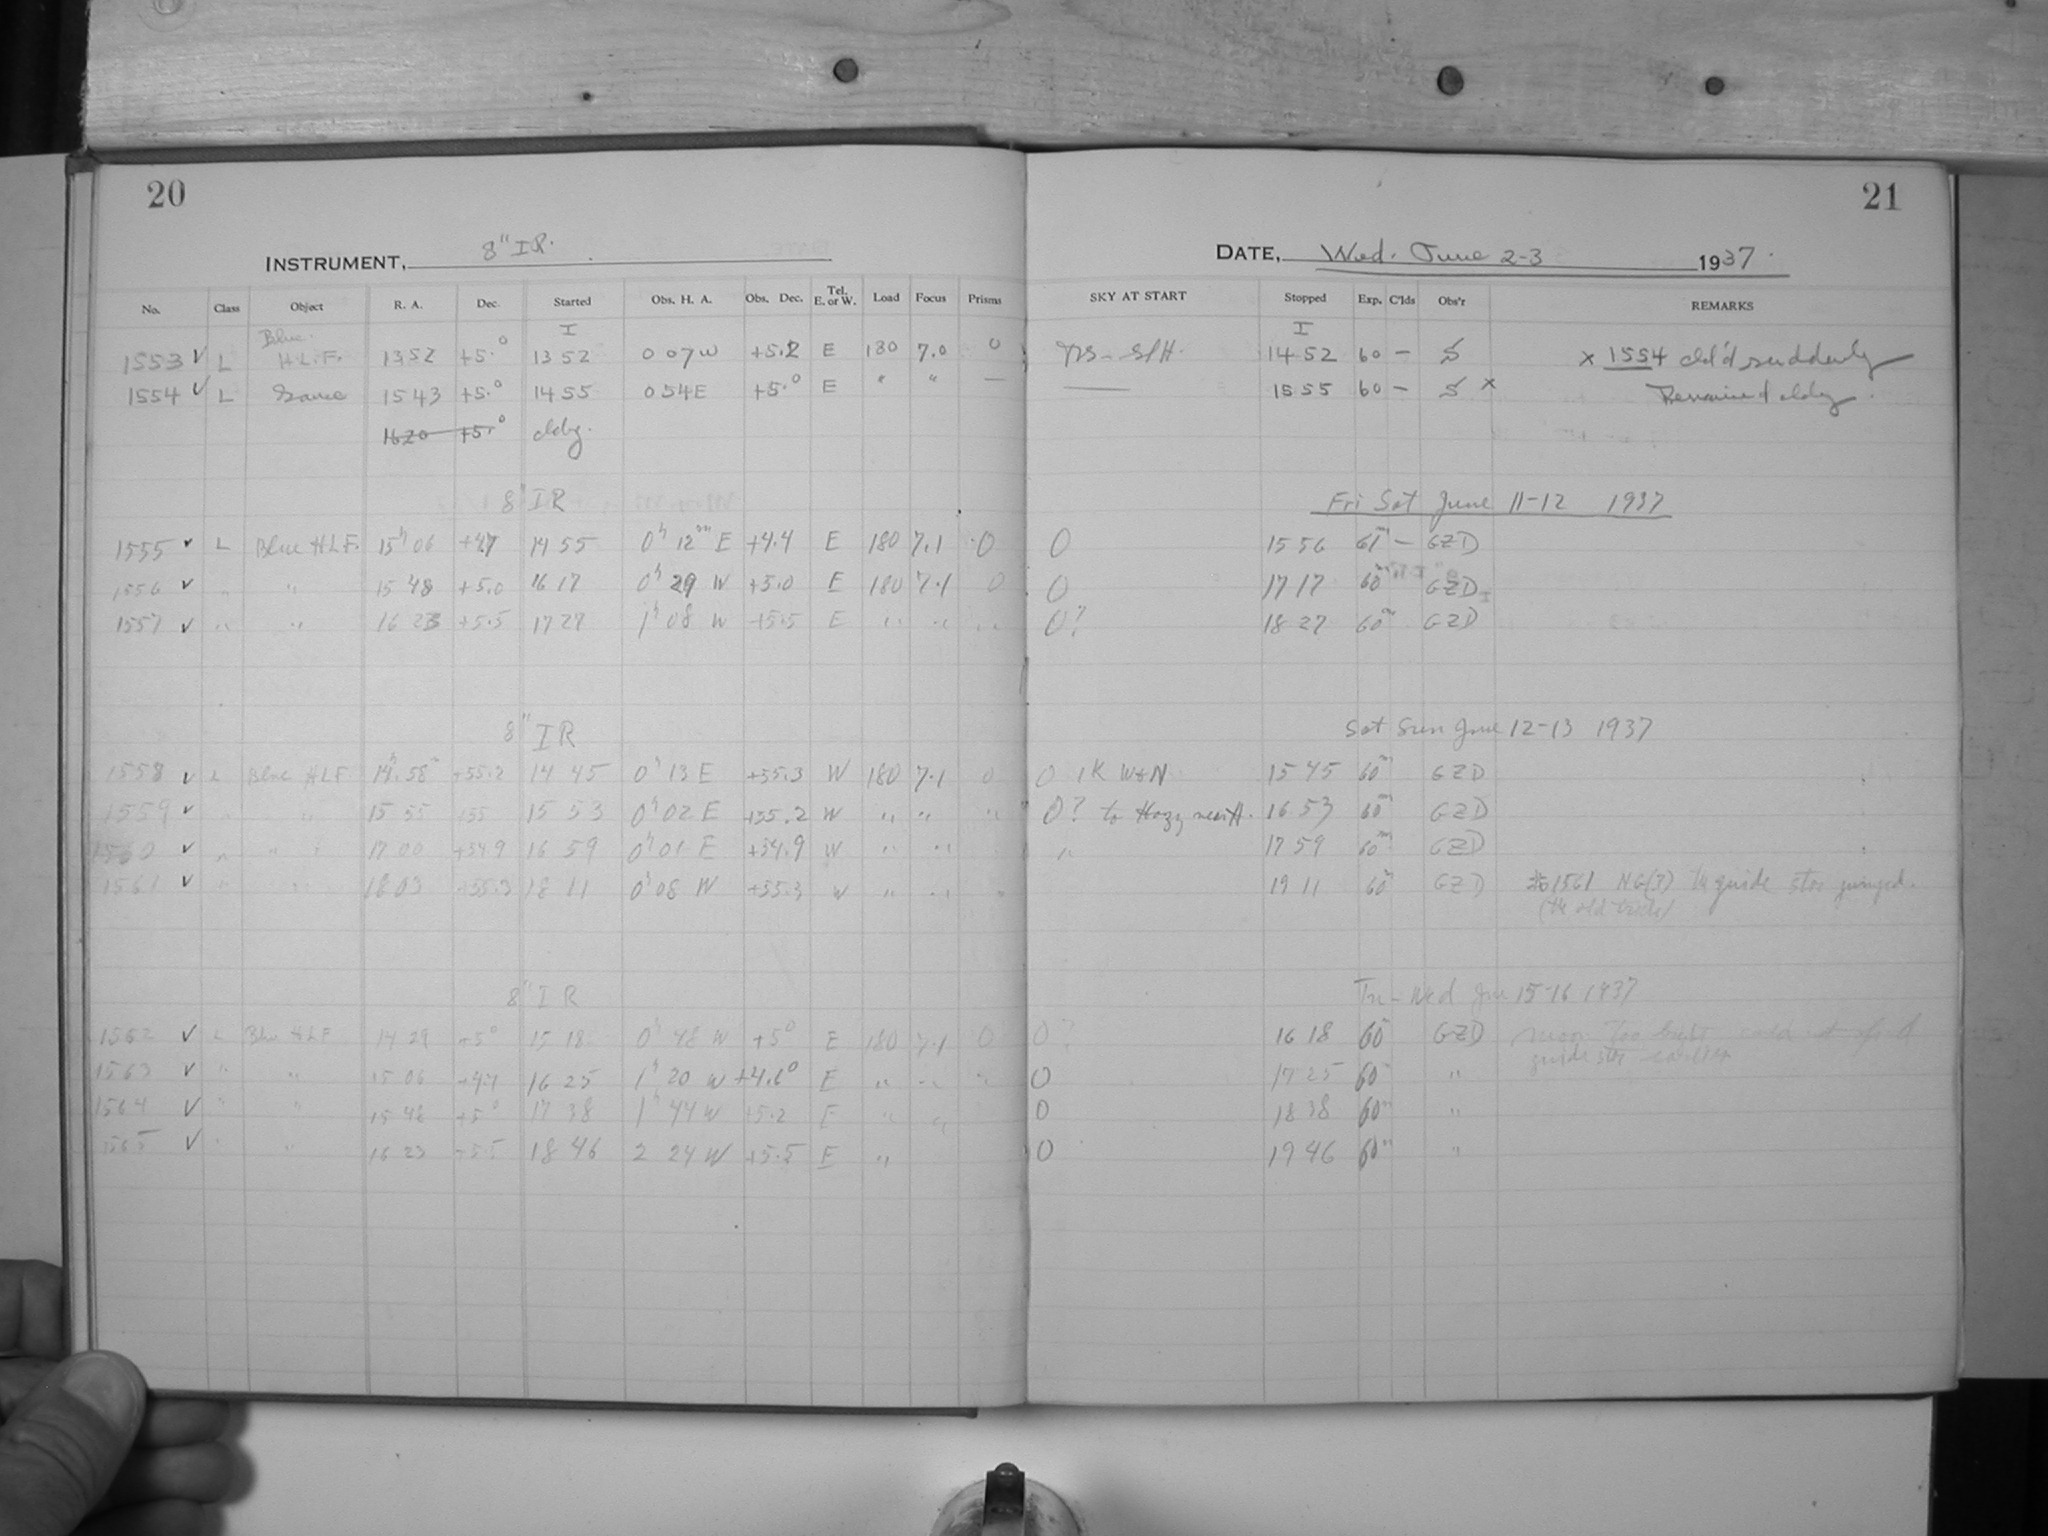 20
21
INSTRUMENT, 8" IR.
DATE, Wed. June 2-3 1937.
No. Class Object R. A. Dec. Started Obs. H. A. Obs. Dec. Tel. E. or W. Load Focus Prisms SKY AT START Stopped Exp. C'lds Obs'r REMARKS
Blue. I I
1553 ✓ L H.L.F. 13 52 +5.° 13 52 0 07 W +5.2 E 180 7.0 0 14 52 60 — S x 1554 cld'd suddenly
1554 ✓ L Same 15 43 +5.° 14 55 0 54 E +5.° E " " — — 15 55 60 — S x Remained cldy.
1620 +5.° cldy.
8" IR Fri Sat June 11-12 1937
1555 ✓ L Blue HLF. 15h 06 14 55 0h 12m E +4.4 E 180 7.1 0 0 15 56 61m — GZD
1556 ✓ " " 15 48 +5.0 16 17 0h 29 W +5.0 E 180 7.1 0 0 17 17 60m GZD
1557 ✓ " " 16 23 +5.5 17 27 1h 08 W +5.5 E " " " 0? 18 27 60m GZD
8" IR Sat Sun June 12-13 1937
1558 ✓ L Blue HLF 14h 58m +35.2 14 45 0h 13 E +35.3 W 180 7.1 0 0 1K W&N 15 45 60m GZD
1559 ✓ " " 15 55 +35 15 53 0h 02 E +35.2 W " " " 0? to Hazy near H. 16 53 60m GZD
1560 ✓ " " 17 00 +34.9 16 59 0h 01 E +34.9 W " " " 17 59 60m GZD
1561 ✓ " " 18 03 +35.3 18 11 0h 08 W +35.3 W " " " 19 11 60m GZD 1561 NG(3) the guide star jumped.
(the old trick)
8" IR Tu-Wed June 15-16 1937
1562 ✓ L Blue HLF 14 29 +5° 15 18 0h 48 W +5° E 180 7.1 0 0? 16 18 60m GZD Moon too bright could not find
guide star earlier
1563 ✓ " " 15 06 +4.7 16 25 1h 20 W +4.6° E " " " 0 17 25 60m "
1564 ✓ " " +5° 17 38 1h 44 W +5.2 E " " 0 18 38 60m "
1565 ✓ " " 16 23 +5.5 18 46 2 24 W +5.5 E " 0 19 46 60m "